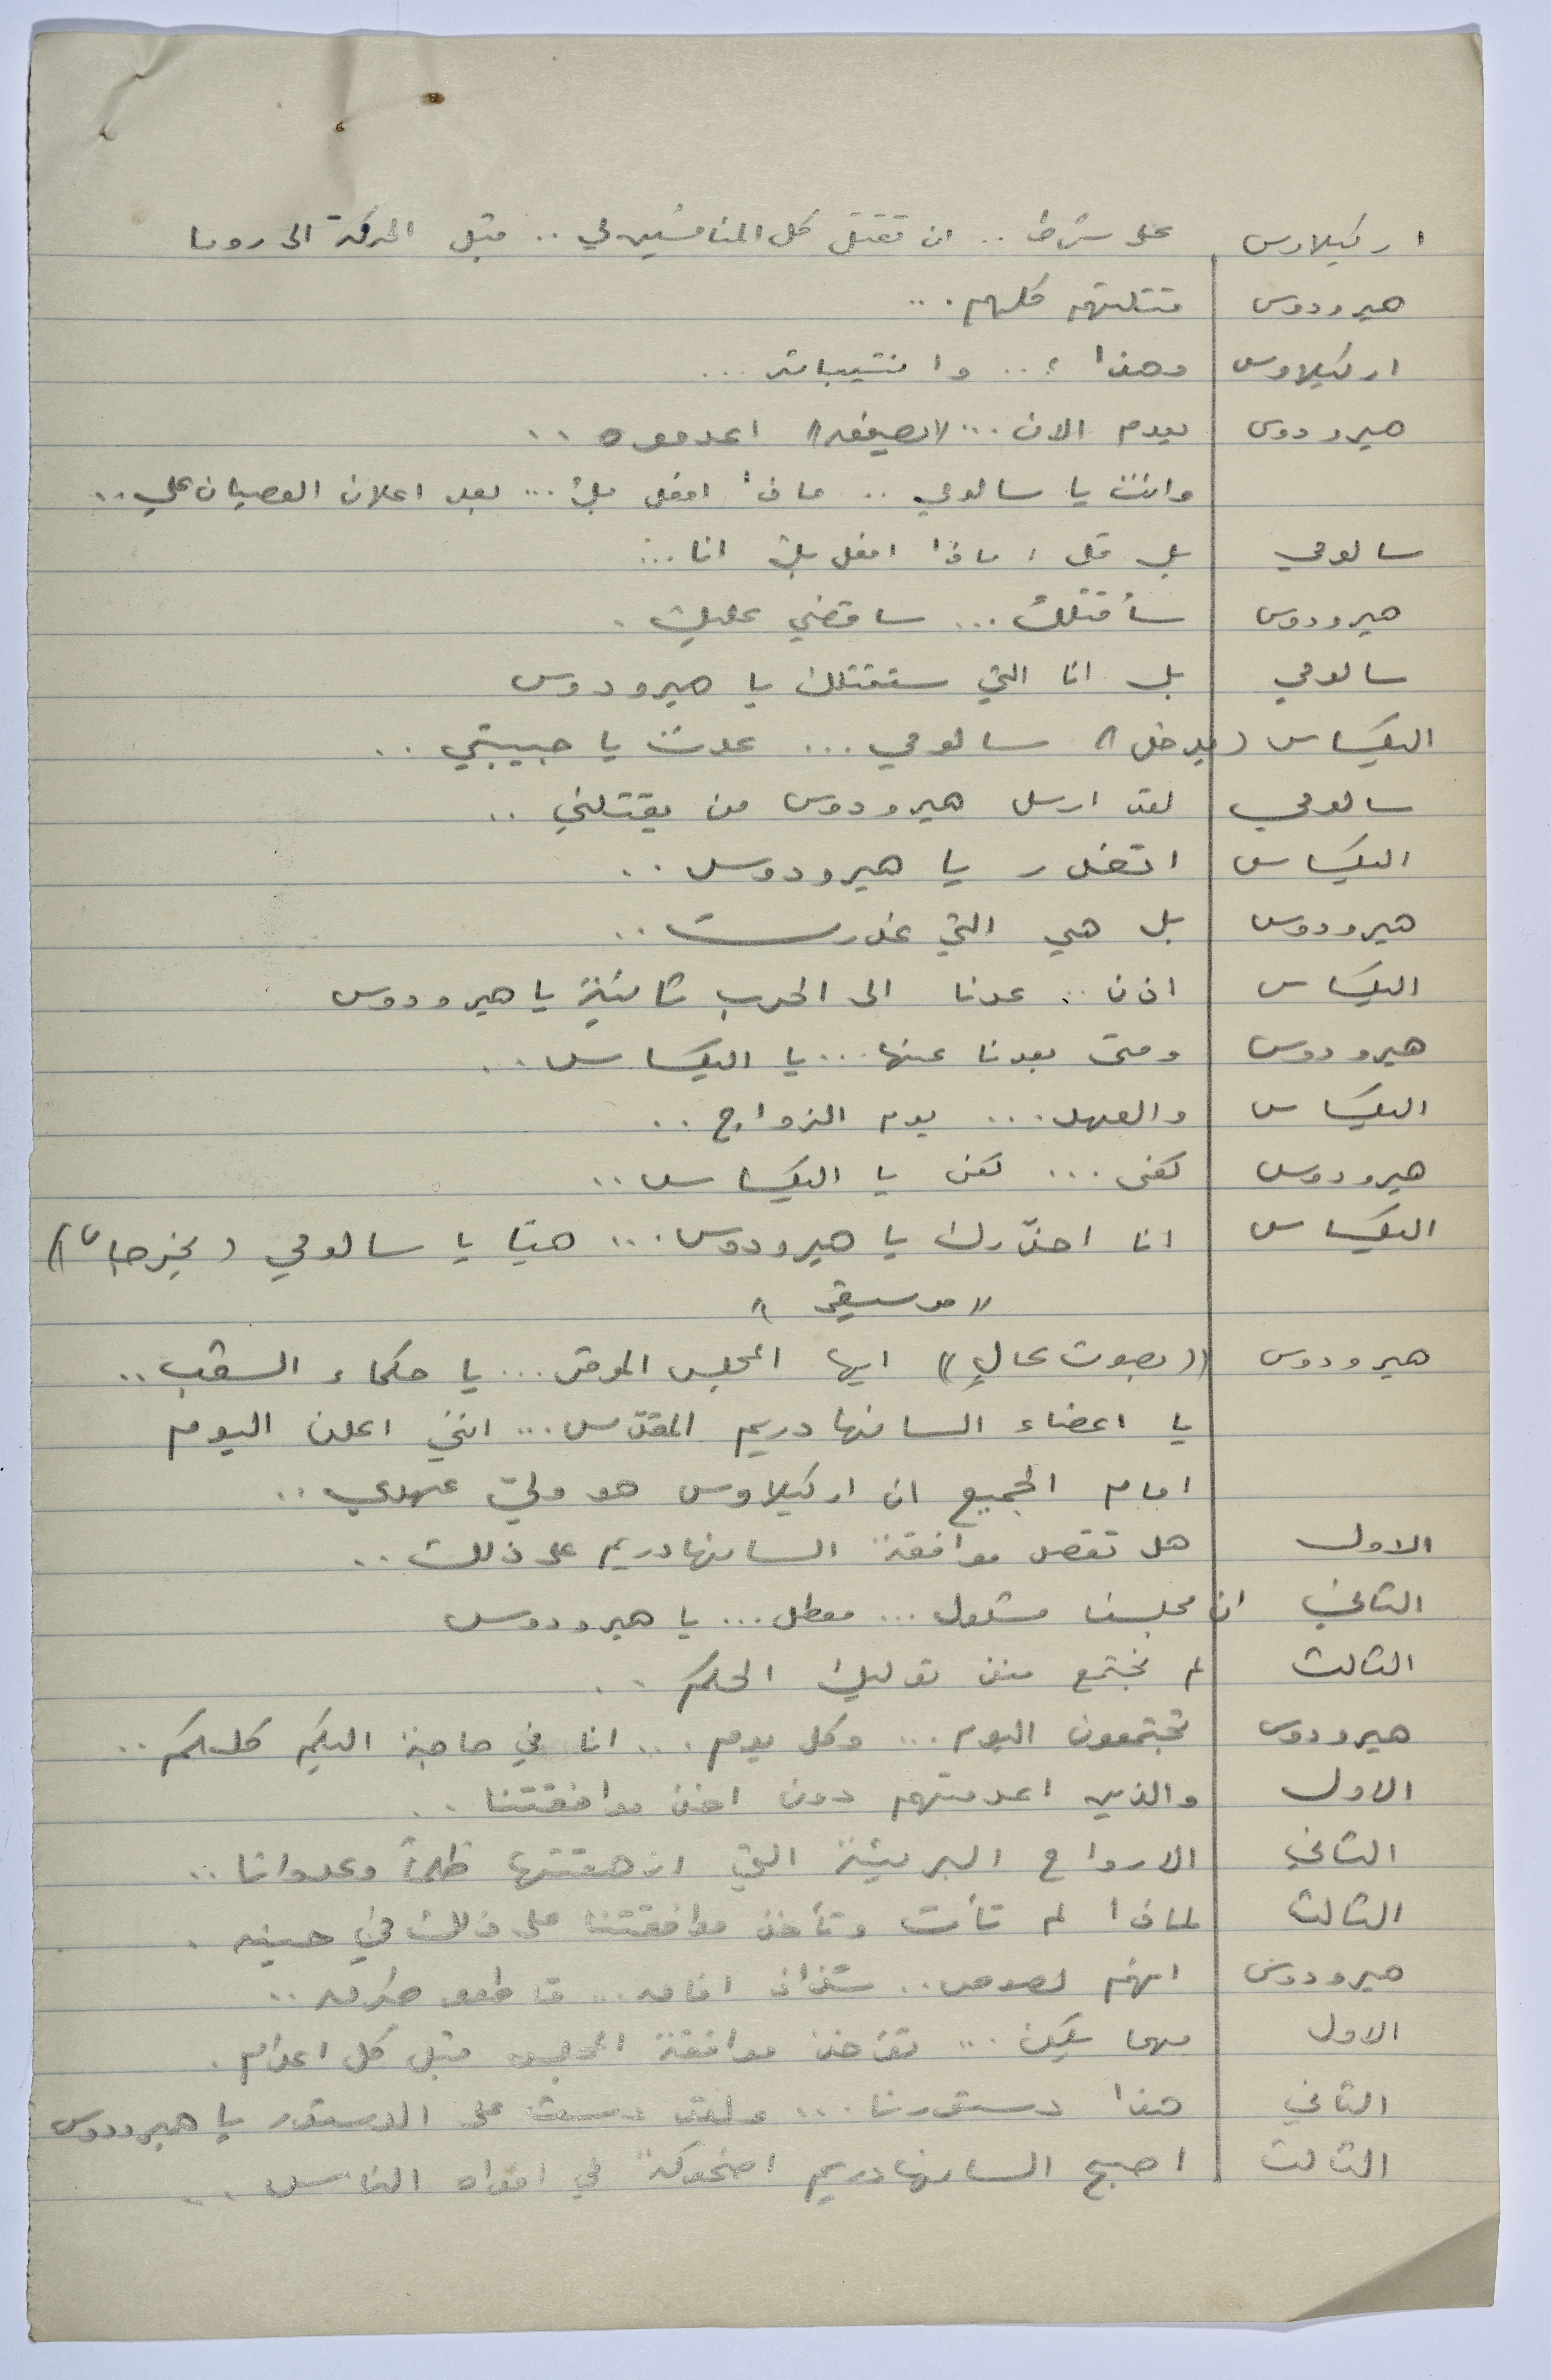 اركيلاوس على شرط .. ان تقتل كل المنافسين لي .. قبل الحركة الى روما
هيرودوس قتلتهم كلهم ...
اركيلاوس وهذا ؟ .. وانتيباتر ...
هيرودوس يعدم الان ... اعدموه ..
وانت يا سالومي .. ماذا افعل بك ... بعد اعلان العصيان علي ..
سالومي بل قل ، ماذا افعل بك انا ...
هيرودوس سأقتلك ... ساقضي عليك .
سالومي بل انا التي ستقتلك يا هيرودوس
اليكساس (يدخل) سالومي ... عدت يا حبيبتي ..
سالومي لقد ارسل هيرودوس من يقتلني ..
اليكساس اتغدر يا هيرودوس ..
هيرودوس بل هي التي غدرت ..
اليكساس اذن .. عدنا الى الحرب ثانية يا هيرودوس
هيرودوس ومتى بعدنا عنها ... يا اليكساس ..
اليكساس والعهد ... يوم الزواج ..
هيرودوس كفى ... كفى يا اليكساس ..
اليكساس انا احذّرك يا هيرودوس ... هيّا يا سالومي (يخرجان))
"موسيقى"
هيرودوس ((بصوت عالٍ)) ايها المجلس الموقر ... يا حكماء الشعب ..
يا اعضاء السانهادريم المقدّس ... انني اعلن اليوم
امام الجميع ان اركيلاوس هو وليّ عهدي ..
الاول هل تقصد موافقة السانهادريم على ذلك ..
الثاني ان مجلسنا مشلول ... معطل ... يا هيرودوس
الثالث لم نجتمع منذ توليك الحكم ..
هيرودوس تجتمعون اليوم ... وكل يوم ... انا في حاجة اليكم كلكم ..
الاول والذين اعدمتهم دون اخذ موافقتنا ..
الثاني الارواح البريئة التي ازهقتها ظلماً وعدوانا ..
الثالث لماذا لم تأت وتأخذ موافقتنا على ذلك في حينه .
هيرودوس انهم لصوص .. شذاذ افاق ... قاطعو طرق ..
الاول مهما يكن ... تؤخذ موافقة المجلس قبل كل اعدام .
الثاني هذا دستورنا ... ولقد دست على الدستور يا هيرودوس
الثالث اصبح السانهادريم اضحوكة في افواه الناس ...